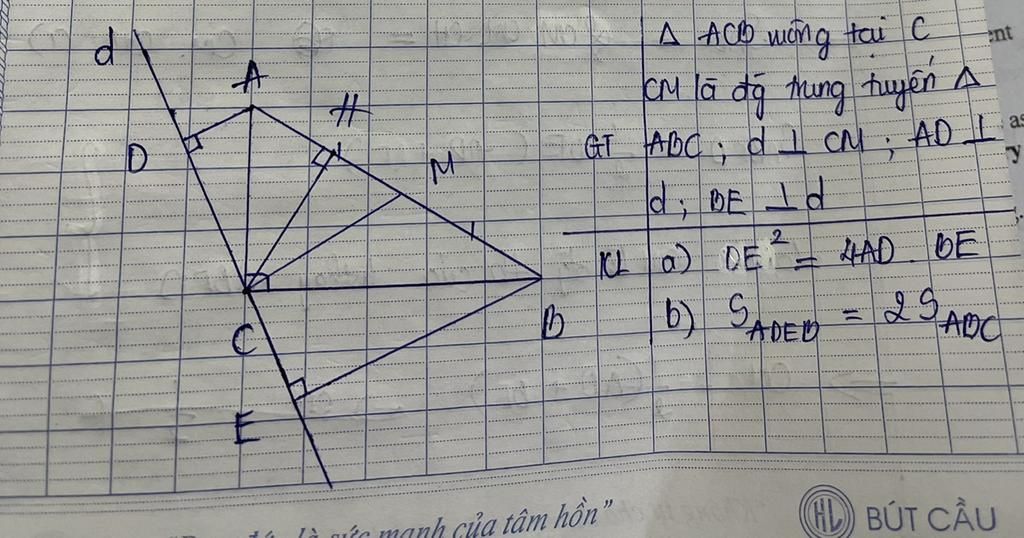 d
A
H
D
M
C
B
E
Δ ACB vuông tại C
CM là đg trung tuyến Δ
GT ABC ; d ⊥ CM ; AD ⊥
d ; BE ⊥ d
KL a) DE² = 4AD . BE
b) S_ADEB = 2S_ABC
là sức mạnh của tâm hồn”
HL BÚT CẦU
ent
as
y